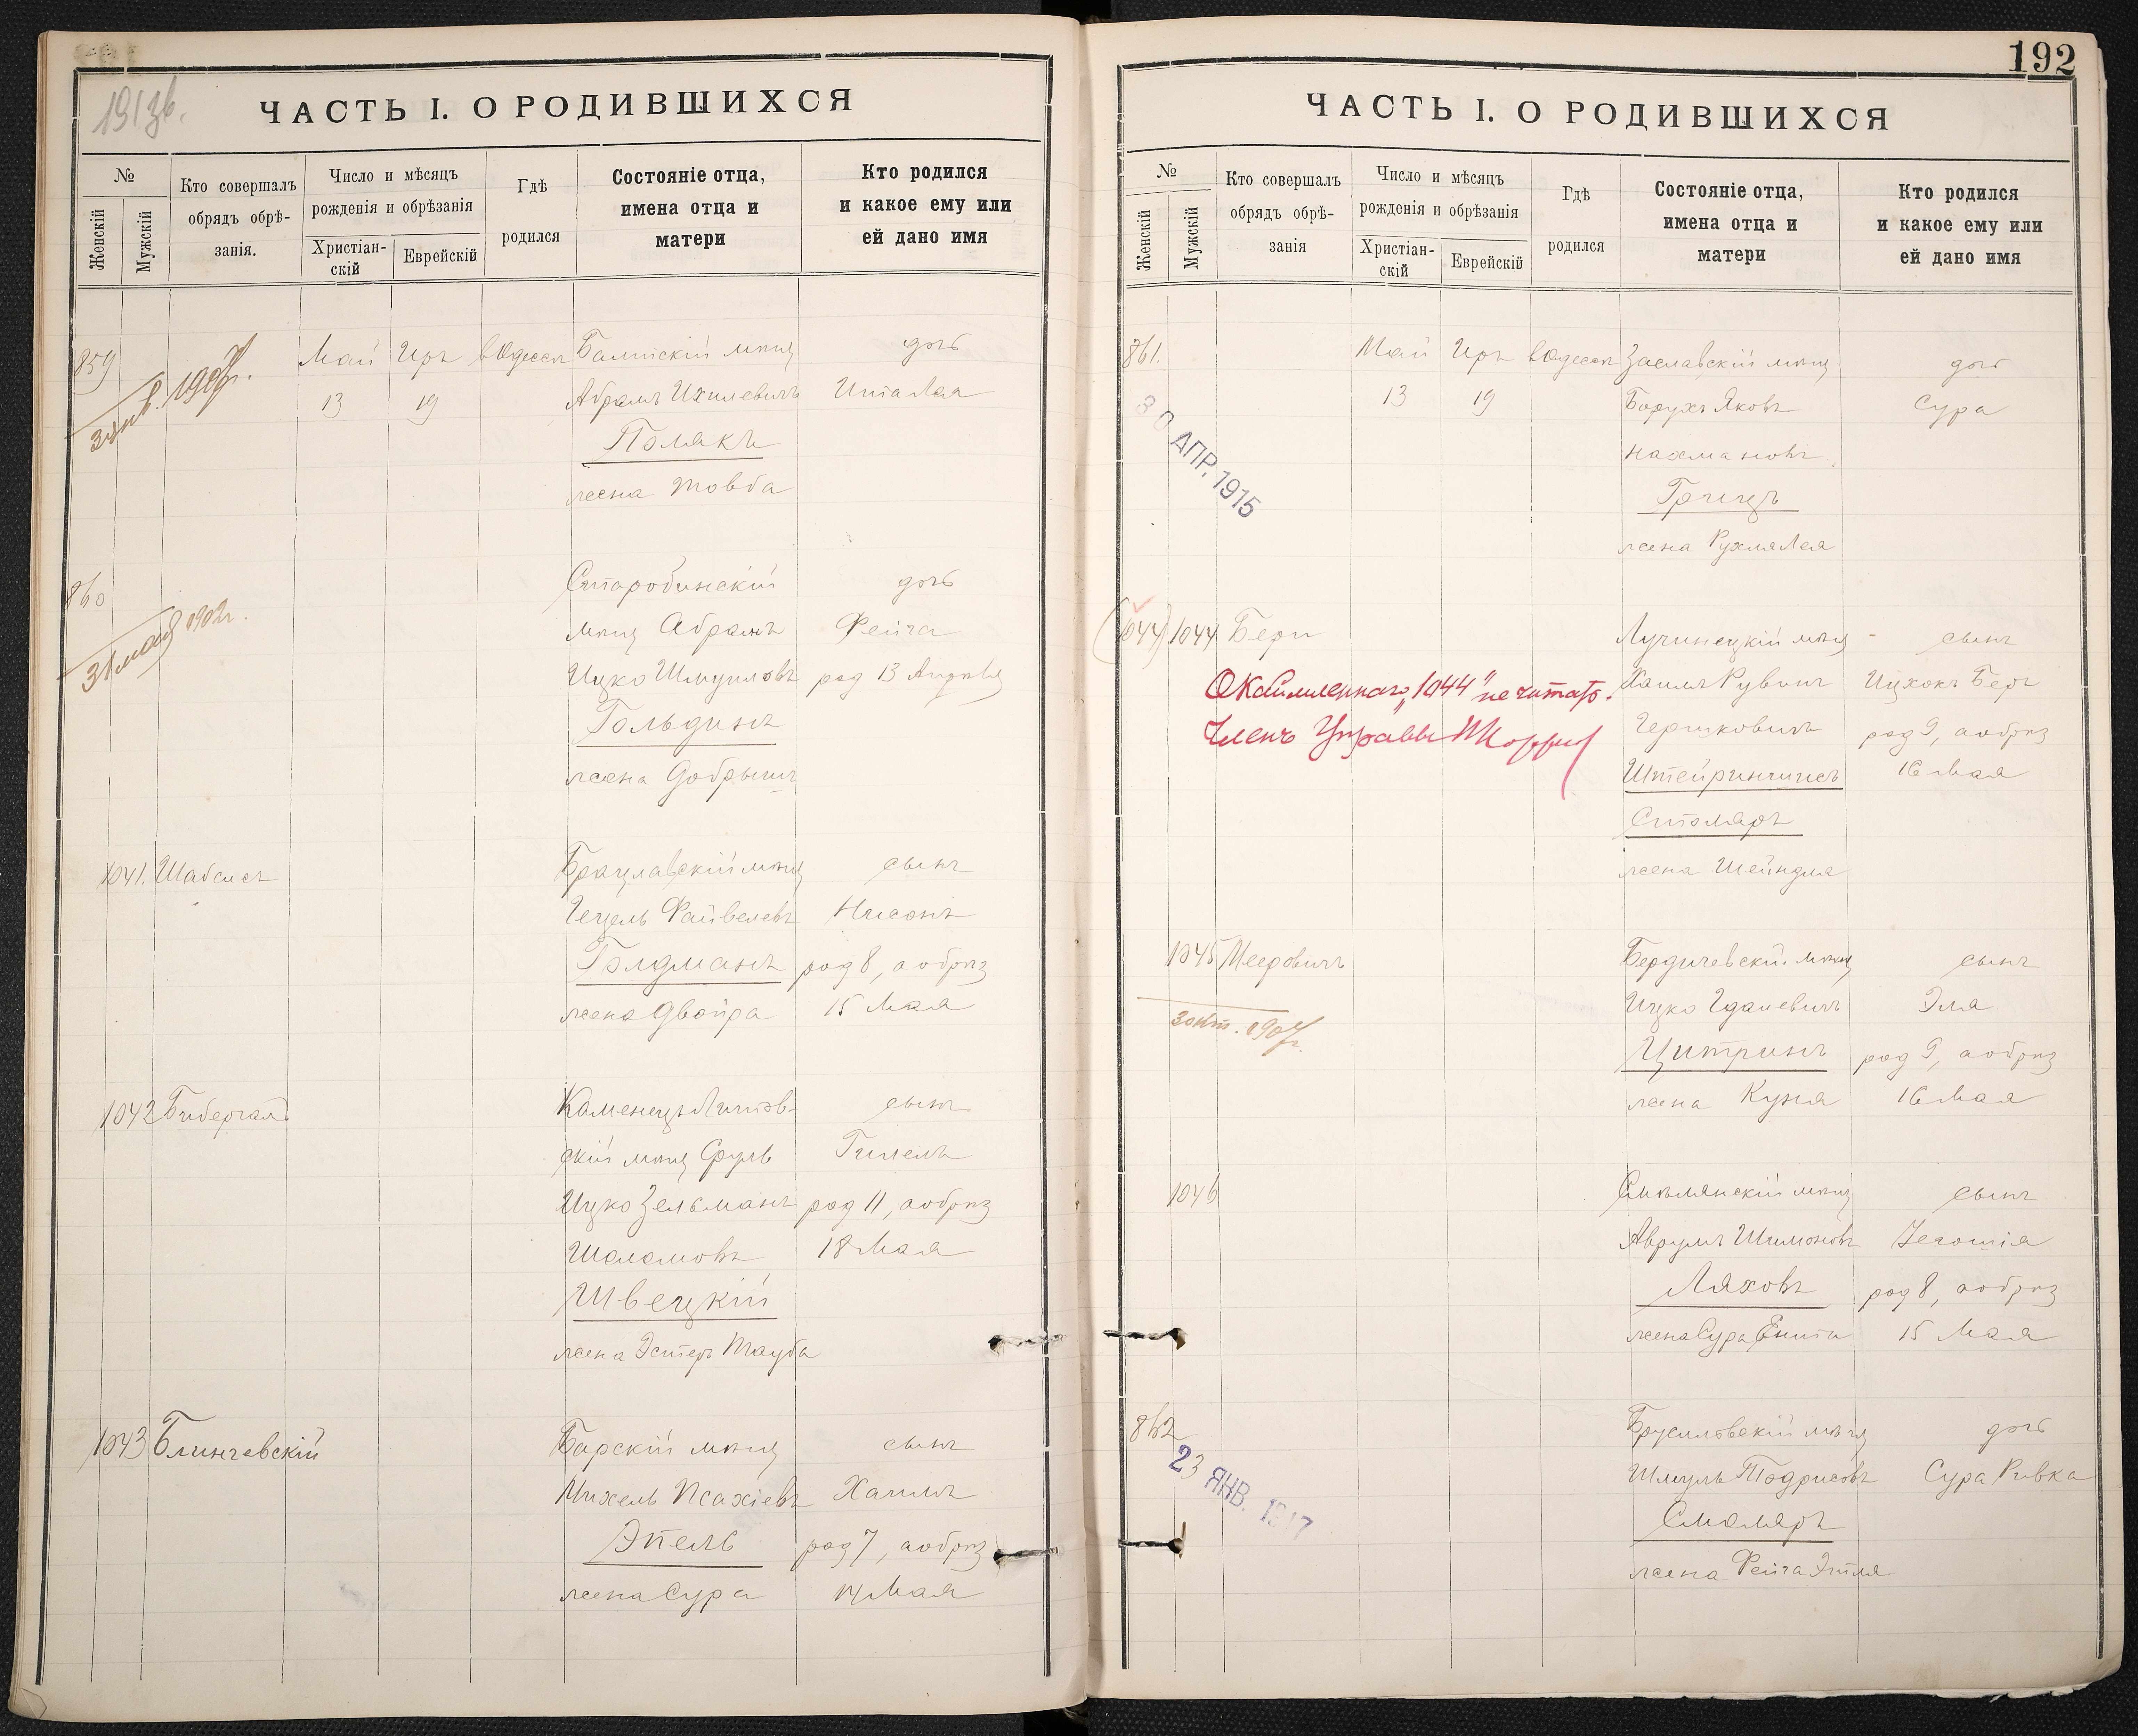 191 зв.
ЧАСТЬ I. О РОДИВШИХСЯ
№
Женскій
Мужскій
Кто совершалъ
обрядъ обрѣ-
занія.
Число и мѣсяцъ
рожденія и обрѣзанія
Христіан-
скій
Еврейскій
Гдѣ
родился
Состояніе отца,
имена отца и
матери
Кто родился
и какое ему или
ей дано имя
859 Май Иръ в Одессѣ Балтскій мѣщ дочь
13 19 Абрамъ Ихилевичъ Ита Лая
Полякъ
жена Товба
860 Старобинскій дочь
31 мая
мѣщ Абрамъ Фейга
Ицко Шмуиловъ род 13 Апрѣля
Гольдинъ
жена Добрышъ
1041. Шабсисъ Брацлавскій мѣщ сынъ
Гецель Файвелевъ Нисонъ
Голдманъ род 8, а обрѣз
жена Двойра 15 Мая
1042 Бибергалъ Каменецъ Литов- сынъ
скій мѣщ Сруль Гилель
Ицко Зельманъ род 11, а обрѣз
Шаламовъ 18 Мая
Швецкій
жена Эстеръ Тауба
1043 Блинчевскій Барскій мѣщ сынъ
Михель Псахіевъ Хаимъ
Эпель род 7, а обрѣз
жена Сура 14 Мая
192
ЧАСТЬ I. О РОДИВШИХСЯ
№
Женскій
Мужскій
Кто совершалъ
обрядъ обрѣ-
занія
Число и мѣсяцъ
рожденія и обрѣзанія
Христіан-
скій
Еврейскій
Гдѣ
родился
Состояніе отца,
имена отца и
матери
Кто родился
и какое ему или
ей дано имя
861. Май Иръ в Одессѣ Заславскій мѣщ дочь
13 19 Борухъ Яковъ Сура
30 АПР. 1915
Нахмановъ
Грицъ
жена Рухля Лея
(1044) 1044 Бери Лучинецкій мѣщ сынъ
Окаймленнаго „1044" не читать.
Членъ Управы
Хаимъ Рувинъ Ицхокъ Беръ
Гершковичъ род 9, а обрѣз
16 Мая
Столяръ
жена Шейндля
1045 Мееровичъ Бердичевскій мѣщ сынъ
3 окт. 1907 г.
Ицко Гдалевичъ Эля
Цитринъ род 9, а обрѣз
жена Куня 16 Мая
1046 Смѣлянскій мѣщ сынъ
Аврумъ Шимоновъ
Ляховъ род 8, а обрѣз
жена Сура Ента 15 Мая
862 Брусиловскій мѣщ дочь
23 ЯНВ. 1917
Шмуль Тодрисовъ Сура Ривка
Смоляръ
жена Фейга Этля